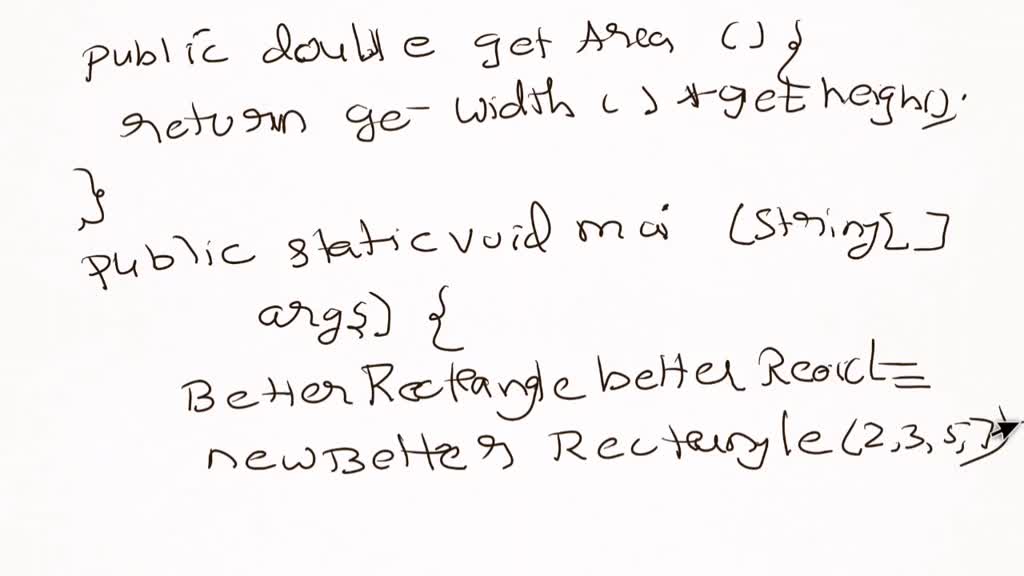 public double get Area () {
return ge- width ( ) * get heigh().
}
public static void mai (String[]
args) {
Better Rectangle better Rect=
new Better Rectangle (2,3,5,7)